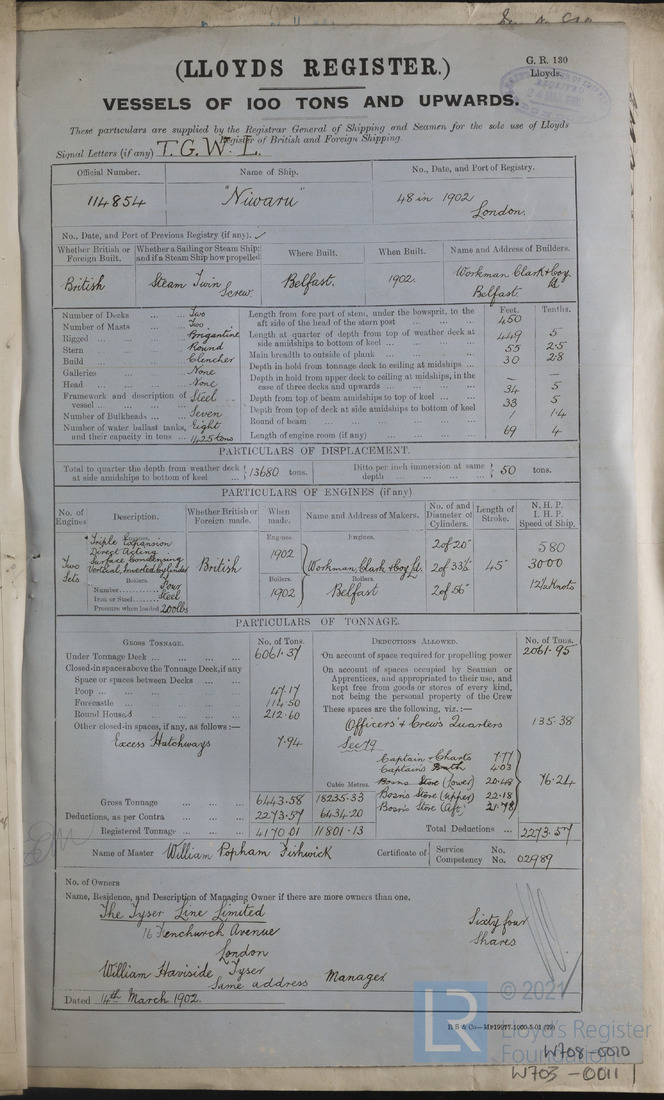 (LLOYDS REGISTER.)
G. R. 130
Lloyds.
VESSELS OF 100 TONS AND UPWARDS.
These particulars are supplied by the Registrar General of Shipping and Seamen for the sole use of Lloyds
Register of British and Foreign Shipping.
Signal Letters (if any) T.G.W.L.
Official Number. Name of Ship. No., Date, and Port of Registry.
114854 "Niwaru" 48 in 1902
London.
No., Date, and Port of Previous Registry (if any).
Whether British or Foreign Built. Whether a Sailing or Steam Ship; and if a Steam Ship how propelled Where Built. When Built. Name and Address of Builders.
British Steam Twin Screw. Belfast. 1902. Workman Clark & Coy Ld Belfast
Feet. Tenths.
Number of Decks ... ... Two
Number of Masts ... ... Two
Rigged ... Brigantine
Stern ... Round
Build ... Clencher
Galleries ... None
Head ... None
Framework and description of vessel ... Steel
Number of Bulkheads ... Seven
Number of water ballast tanks, and their capacity in tons ... Eight 1425 tons
Length from fore part of stem, under the bowsprit, to the aft side of the head of the stern post ... 450
Length at quarter of depth from top of weather deck at side amidships to bottom of keel ... 449 5
Main breadth to outside of plank ... 55 2·5
Depth in hold from tonnage deck to ceiling at midships ... 30 2·8
Depth in hold from upper deck to ceiling at midships, in the case of three decks and upwards ... – –
Depth from top of beam amidships to top of keel ... 34 5
Depth from top of deck at side amidships to bottom of keel 33 5
Round of beam ... 1 1·4
Length of engine room (if any) ... 69 4
PARTICULARS OF DISPLACEMENT.
Total to quarter the depth from weather deck at side amidships to bottom of keel ... 13680 tons. Ditto per inch immersion at same depth ... 50 tons.
PARTICULARS OF ENGINES (if any)
No. of Engines Description. Whether British or Foreign made. When made. Name and Address of Makers. No. of and Diameter of Cylinders. Length of Stroke. N. H. P. I. H. P. Speed of Ship.
Two Sets
Engines.
Triple Expansion
Direct Acting
Surface Condensing
Vertical, Inverted Cylinder
Boilers.
Number Four
Iron or Steel Steel
Pressure when loaded 200lbs
British
Engines 1902
Boilers. 1902
Engines.
Workman Clark & Coy Ld.
Boilers.
Belfast
2 of 20"
2 of 33½"
2 of 56"
45"
580
3000
12½ Knots
PARTICULARS OF TONNAGE.
GROSS TONNAGE. No. of Tons.
Under Tonnage Deck ... 6061·37
Closed-in spaces above the Tonnage Deck, if any
Space or spaces between Decks ...
Poop ... 47·17
Forecastle ... 114·50
Round Houses ... 212·60
Other closed-in spaces, if any, as follows:—
Excess Hatchways 7·94
Cubic Metres.
Gross Tonnage 6443·58 18235·33
Deductions, as per Contra ... 2273·57 6434·20
Registered Tonnage ... 4170·01 11801·13
DEDUCTIONS ALLOWED. No. of Tons.
On account of space required for propelling power 2061·95
On account of spaces occupied by Seamen or Apprentices, and appropriated to their use, and kept free from goods or stores of every kind, not being the personal property of the Crew
These spaces are the following, viz.:—
Officers' & Crew's Quarters 135·38
Sec 79
Captain & Charts 7·77
Captain's 4·03
Bosns Store (lower) 20·48
Bosn's Store (upper) 22·18
Bosn's Store (aft) 21·78
76·24
Total Deductions ... 2273·57
Name of Master William Popham Fishwick Certificate of Service No. Competency No. 02989
No. of Owners
Name, Residence, and Description of Managing Owner if there are more owners than one.
The Tyser Line Limited
16 Fenchurch Avenue
London
Sixty four Shares
William Haviside Tyser Manager
Same address
Dated 14th March 1902.
© 2021
LR Lloyd's Register Foundation
W708-0010
W703-0011